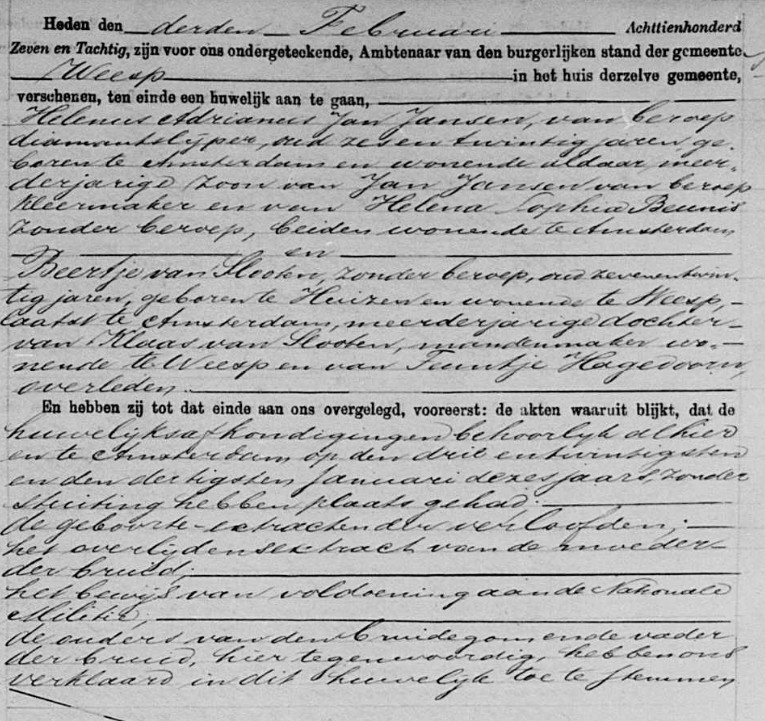 Heden den derden Februari Achttienhonderd
Zeven en Tachtig, zijn voor ons ondergeteekende, Ambtenaar van den burgerlijken stand der gemeente
Weesp in het huis derzelve gemeente,
verschenen, ten einde een huwelijk aan te gaan,
Helenus Adrianus Jan Jansen, van beroep
diamantslijper, oud zes en twintig jaren, ge-
boren te Amsterdam en wonende aldaar, meer-
derjarige zoon van Jan Jansen van beroep
kleermaker en van Helena Sophia Beunis
zonder beroep, beiden wonende te Amsterdam
en
Beertje van Slooten, zonder beroep, oud zevenentwin-
tig jaren, geboren te Huizen en wonende te Weesp,
laatst te Amsterdam, meerderjarige dochter
van Klaas van Slooten, mandenmaker wo-
nende te Weesp en van Teuntje Hagedoorn,
overleden.
En hebben zij tot dat einde aan ons overgelegd, vooreerst: de akten waaruit blijkt, dat de
huwelijksafkondigingen behoorlijk alhier
en te Amsterdam op den drie en twintigsten
en den dertigsten Januari dezes jaars, zonder
stuiting hebben plaats gehad;
de geboorte-extracten der verloofden;
het overlijdensextract van de moeder
der bruid;
het bewijs van voldoening aan de Nationale
Militie;
de ouders van den bruidegom en de vader
der bruid, hier tegenwoordig, hebben ons
verklaard in dit huwelijk toe te stemmen